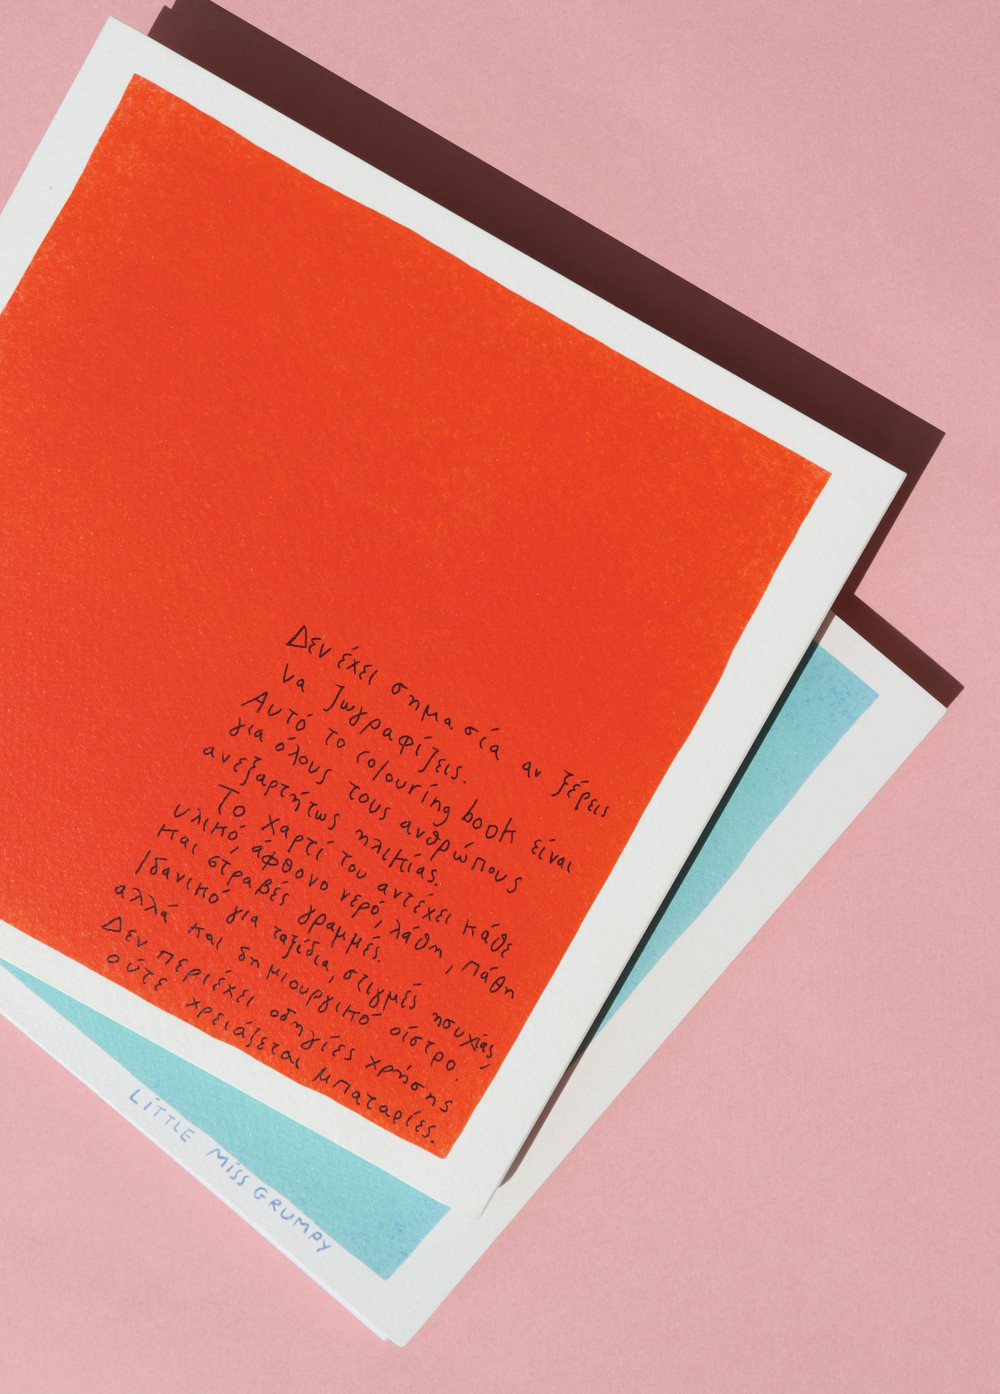 Δεν έχει σημασία αν ξέρεις
να ζωγραφίζεις.
Αυτό το colouring book είναι
για όλους τους ανθρώπους
ανεξαρτήτως ηλικίας.
Το χαρτί του αντέχει κάθε
υλικό, άφθονο νερό, λάθη, πάθη
και στραβές γραμμές.
Ιδανικό για ταξίδια, στιγμές ησυχίας,
αλλά και δημιουργικό οίστρο.
Δεν περιέχει οδηγίες χρήσης
ούτε χρειάζεται μπαταρίες.
LITTLE MISS GRUMPY